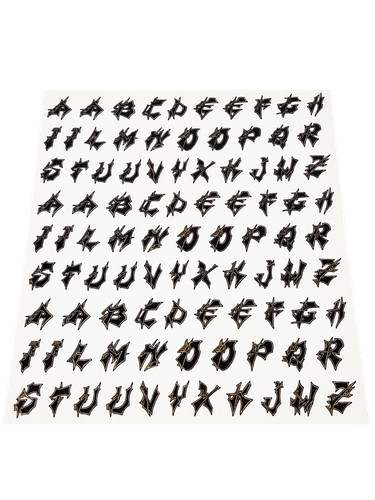 A A B C D E E F G H
I I L M N O O P Q R
S T U U V Y X K J W Z
A A B C D E E F G H
I I L M N O O P Q R
S T U U V Y X K J W Z
A A B C D E E F G H
I I L M N O O P Q R
S T U U V Y X K J W Z